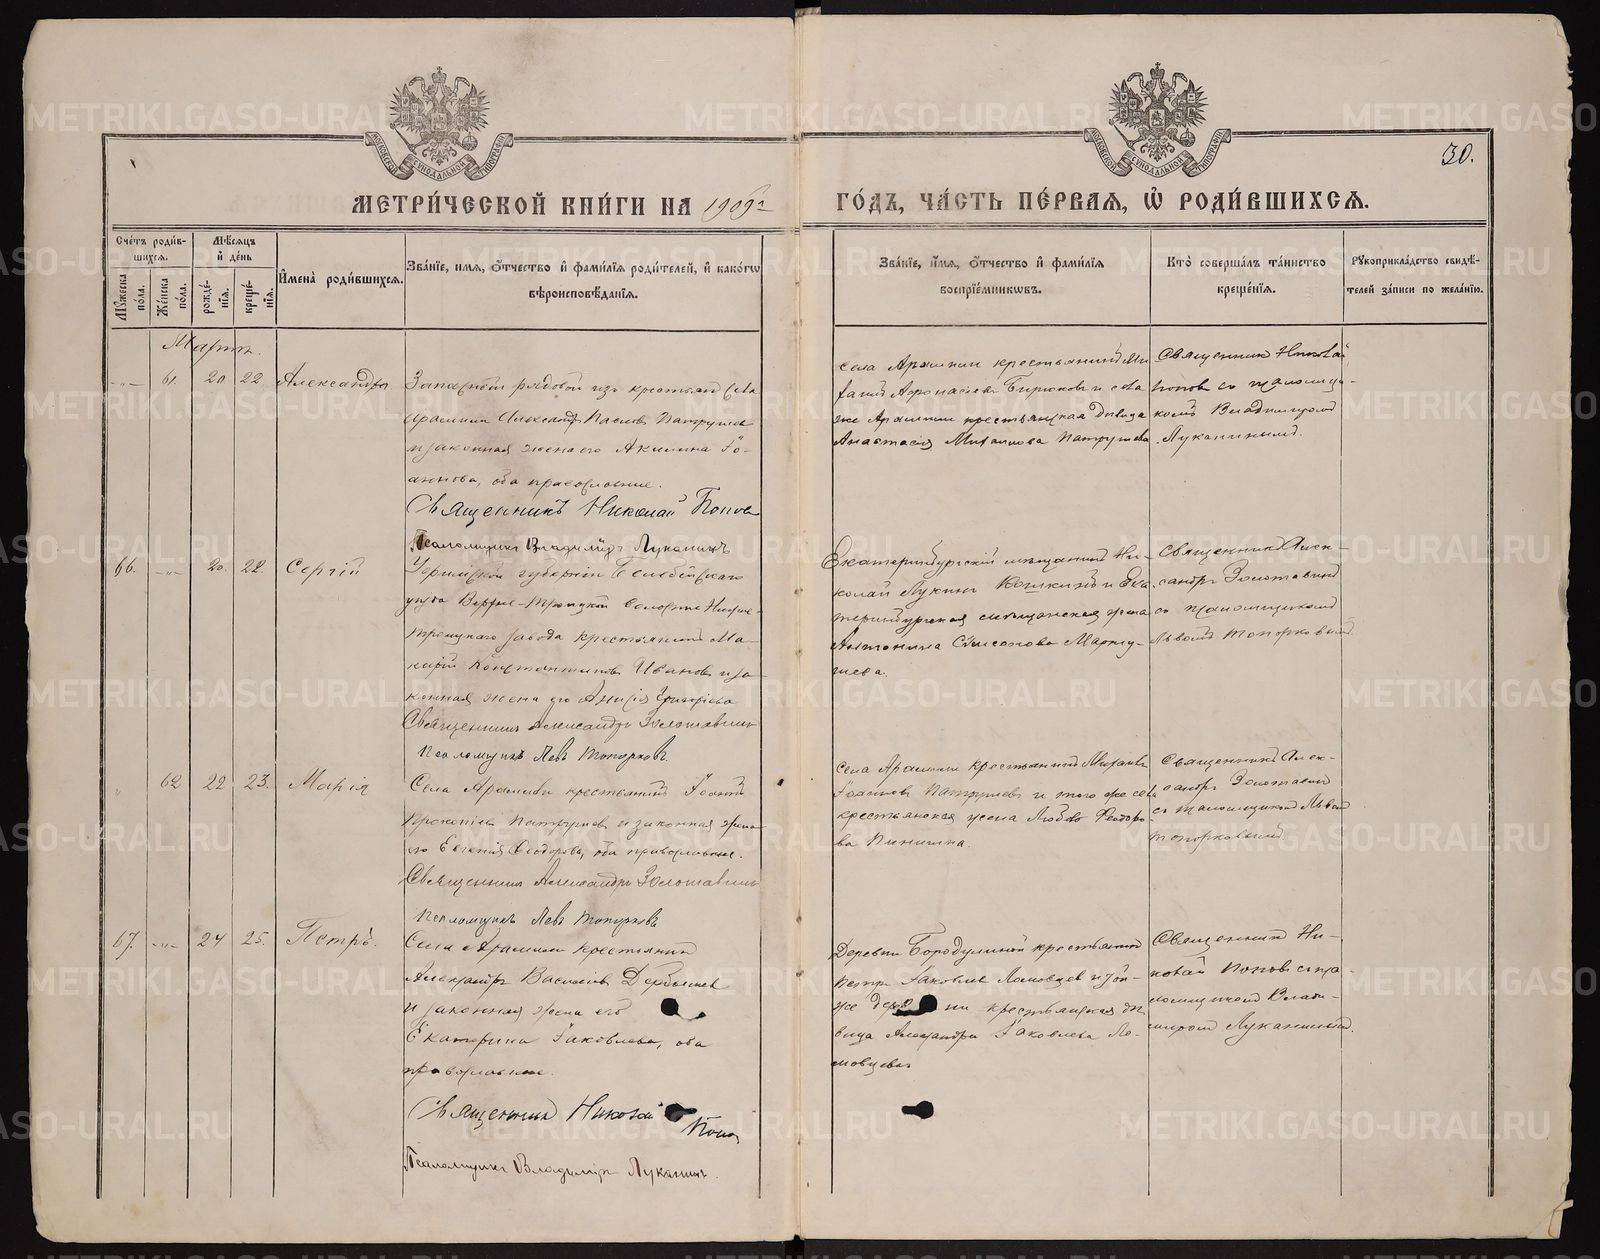 МОСКОВСКОЙ СѴНОДАЛЬНОЙ ТИПОГРАФІИ
МОСКОВСКОЙ СѴНОДАЛЬНОЙ ТИПОГРАФІИ
30.
МЕТРИ́ЧЕСКОЙ КНИ́ГИ НА 1909 г
ГО́ДЪ, ЧА́СТЬ ПЕ́РВАЯ, Ѡ҆ РОДИ́ВШИХСЯ.
Сче́тъ роди́в-
шихся.
Мꙋ́жеска по́ла.
Же́нска по́ла.
Мѣ́сяцъ и҆ де́нь
рожде́-нія.
креще́-нія.
И҆мена̀ роди́вшихся.
Зва́ніе, и҆мя, ѻ҆́тчество и҆ фами́лія роди́телей, и҆ како́гѡ
вѣроисповѣ́данія.
Зва́ніе, и҆́мя, ѻ҆́тчество и҆ фами́лія
воспріе́мникѡвъ.
Кто̀ соверша́лъ та́инство
креще́нія.
Рꙋкоприкла́дство свидѣ́-
телей за́писи по жела́нію.
Мартъ.
-"- 61. 20 22 Александра
Запасный рядовой изъ крестьян села
Арамили Александръ Павловъ Патрушев
и законная жена его Акилина Іо-
аннова, оба православные.
Священникъ Николай Попов
Псаломщикъ Владиміръ Луканинъ
села Арамили крестьянинъ Ми
хаил Афонасіевъ Бирюков и села
же Арамили крестьянская дѣвица
Анастасія Михаилова Патрушева
Священникъ Николай
Попов съ псаломщи-
комъ Владиміромъ
Луканинымъ.
66. -"- 20. 22. Сергій
Уфимской губерніи Белебейскаго
уѣзда Верхне-Троицкой волости Нижне-
троицкаго завода крестьянинъ Ма-
карій Константиновъ Ивановъ и за-
конная жена его Анисія Григоріева
Священникъ Александръ Золотавинъ
Псаломщикъ Левъ Топорковъ
Екатеринбургскій мѣщанинъ Ни-
колай Лукинъ и Ека
теринбургская мѣщанская жена
Антонина Симеонова Марку-
шева.
Священникъ Алек-
сандръ Золотавинъ
съ псаломщикомъ
Львомъ Топорковымъ
" 62 22 23. Марія
Села Арамили крестьянинъ Іоаннъ
Прокопіевъ Патрушевъ и законная жена
его Евгенія Ѳеодорова, оба православные.
Священникъ Александръ Золотавинъ
Псаломщикъ Левъ Топорковъ
Села Арамили крестьянинъ Михаилъ
Іоанновъ Патрушевъ и того же села
крестьянская жена Любовь Ѳеодоро-
ва
Священникъ Алек-
сандръ Золотавинъ
съ псаломщикомъ Львомъ
Топорковымъ.
67. -"- 24 25. Петръ.
Села Арамили крестьянинъ
Александръ Василіевъ Дербышев
и законная жена его
Екатерина Іаковлева, оба
православные.
Священникъ Николай
Попов
Псаломщикъ Владиміръ Луканинъ.
Деревни Бородулиной крестьянинъ
Петръ Іаковлев Ломовцев и той-
же деревни крестьянская дѣ
вица Александра Іаковлева Ло-
мовцева
Священникъ Ни-
колай Попов съ пса-
ломщикомъ Влади-
міромъ Луканинымъ.
METRIKI.GASO-URAL.RU